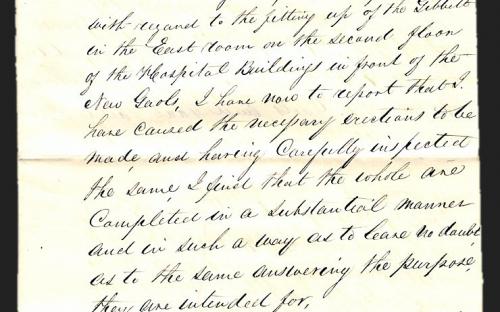 with regard to the fitting up of the Gibbett
in the East room on the second floor
of the Hospital Buildings in front of the
New Gaols, I have now to report that I.
have caused the necessary erections to be
made, and having Carefully inspected
the same, I find that the whole are
Completed in a substantial manner
and in such a way as to leave no doubt
as to the same answering the purpose,
they are intended for.